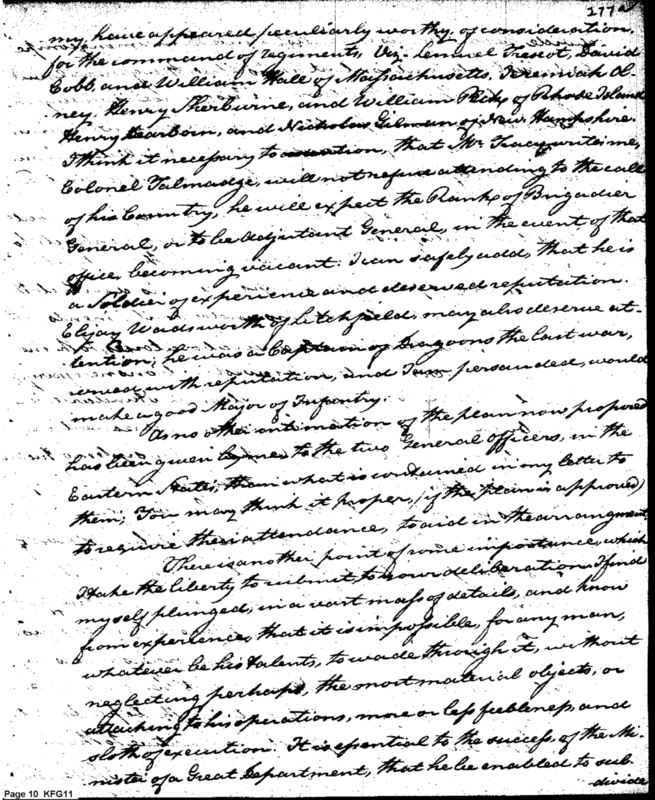 277a
my, have appeared peculiarly worthy, of consideration,
for the command of regiments, Viz. Lemuel Trescot, David
Cobb, and William Hull of Massachusetts, Jeremiah Ol-
ney, Henry Sherburne, and William Peck, of Rhode Island
Henry Dearborn, and Nicholas Gilman of New Hampshire.
I think it necessary to mention, that Mr. Tracy writes me,
Colonel Talmadge, will not refuse attending to the call
of his Country, he will expect the Rank of Brigadier
General, or to be Adjutant General, in the event of that
office, becoming vacant. I can safely add, that he is
a Soldier of experience and deserved reputation.
Elijay Wadsworth of Litchfield, may also deserve at-
tention; he was a Captain of Dragoons the last war,
served with reputation, and I am persuaded, would
make a good Major of Infantry.
As no other intimation of the plan now proposed
has been given by me to the two General officers, in the
Eastern States, than what is contained in my letter to
them; You may think it proper, (if the plan is approved)
to require their attendance, to aid in the arrangment.
There is another point of some importance, which
I take the liberty to submit, to your deliberation. I find
myself plunged, in a vast mass of details, and know
from experience, that it is impossible, for any man,
whatever be his talents, to wade through it, without
neglecting perhaps, the most material objects, or
attaching to his operations, more or less feebleness, and
sloth of execution. It is essential to the success, of the Mi-
nister of a Great Department, that he be enabled to sub-
divide
Page 10 KFG11